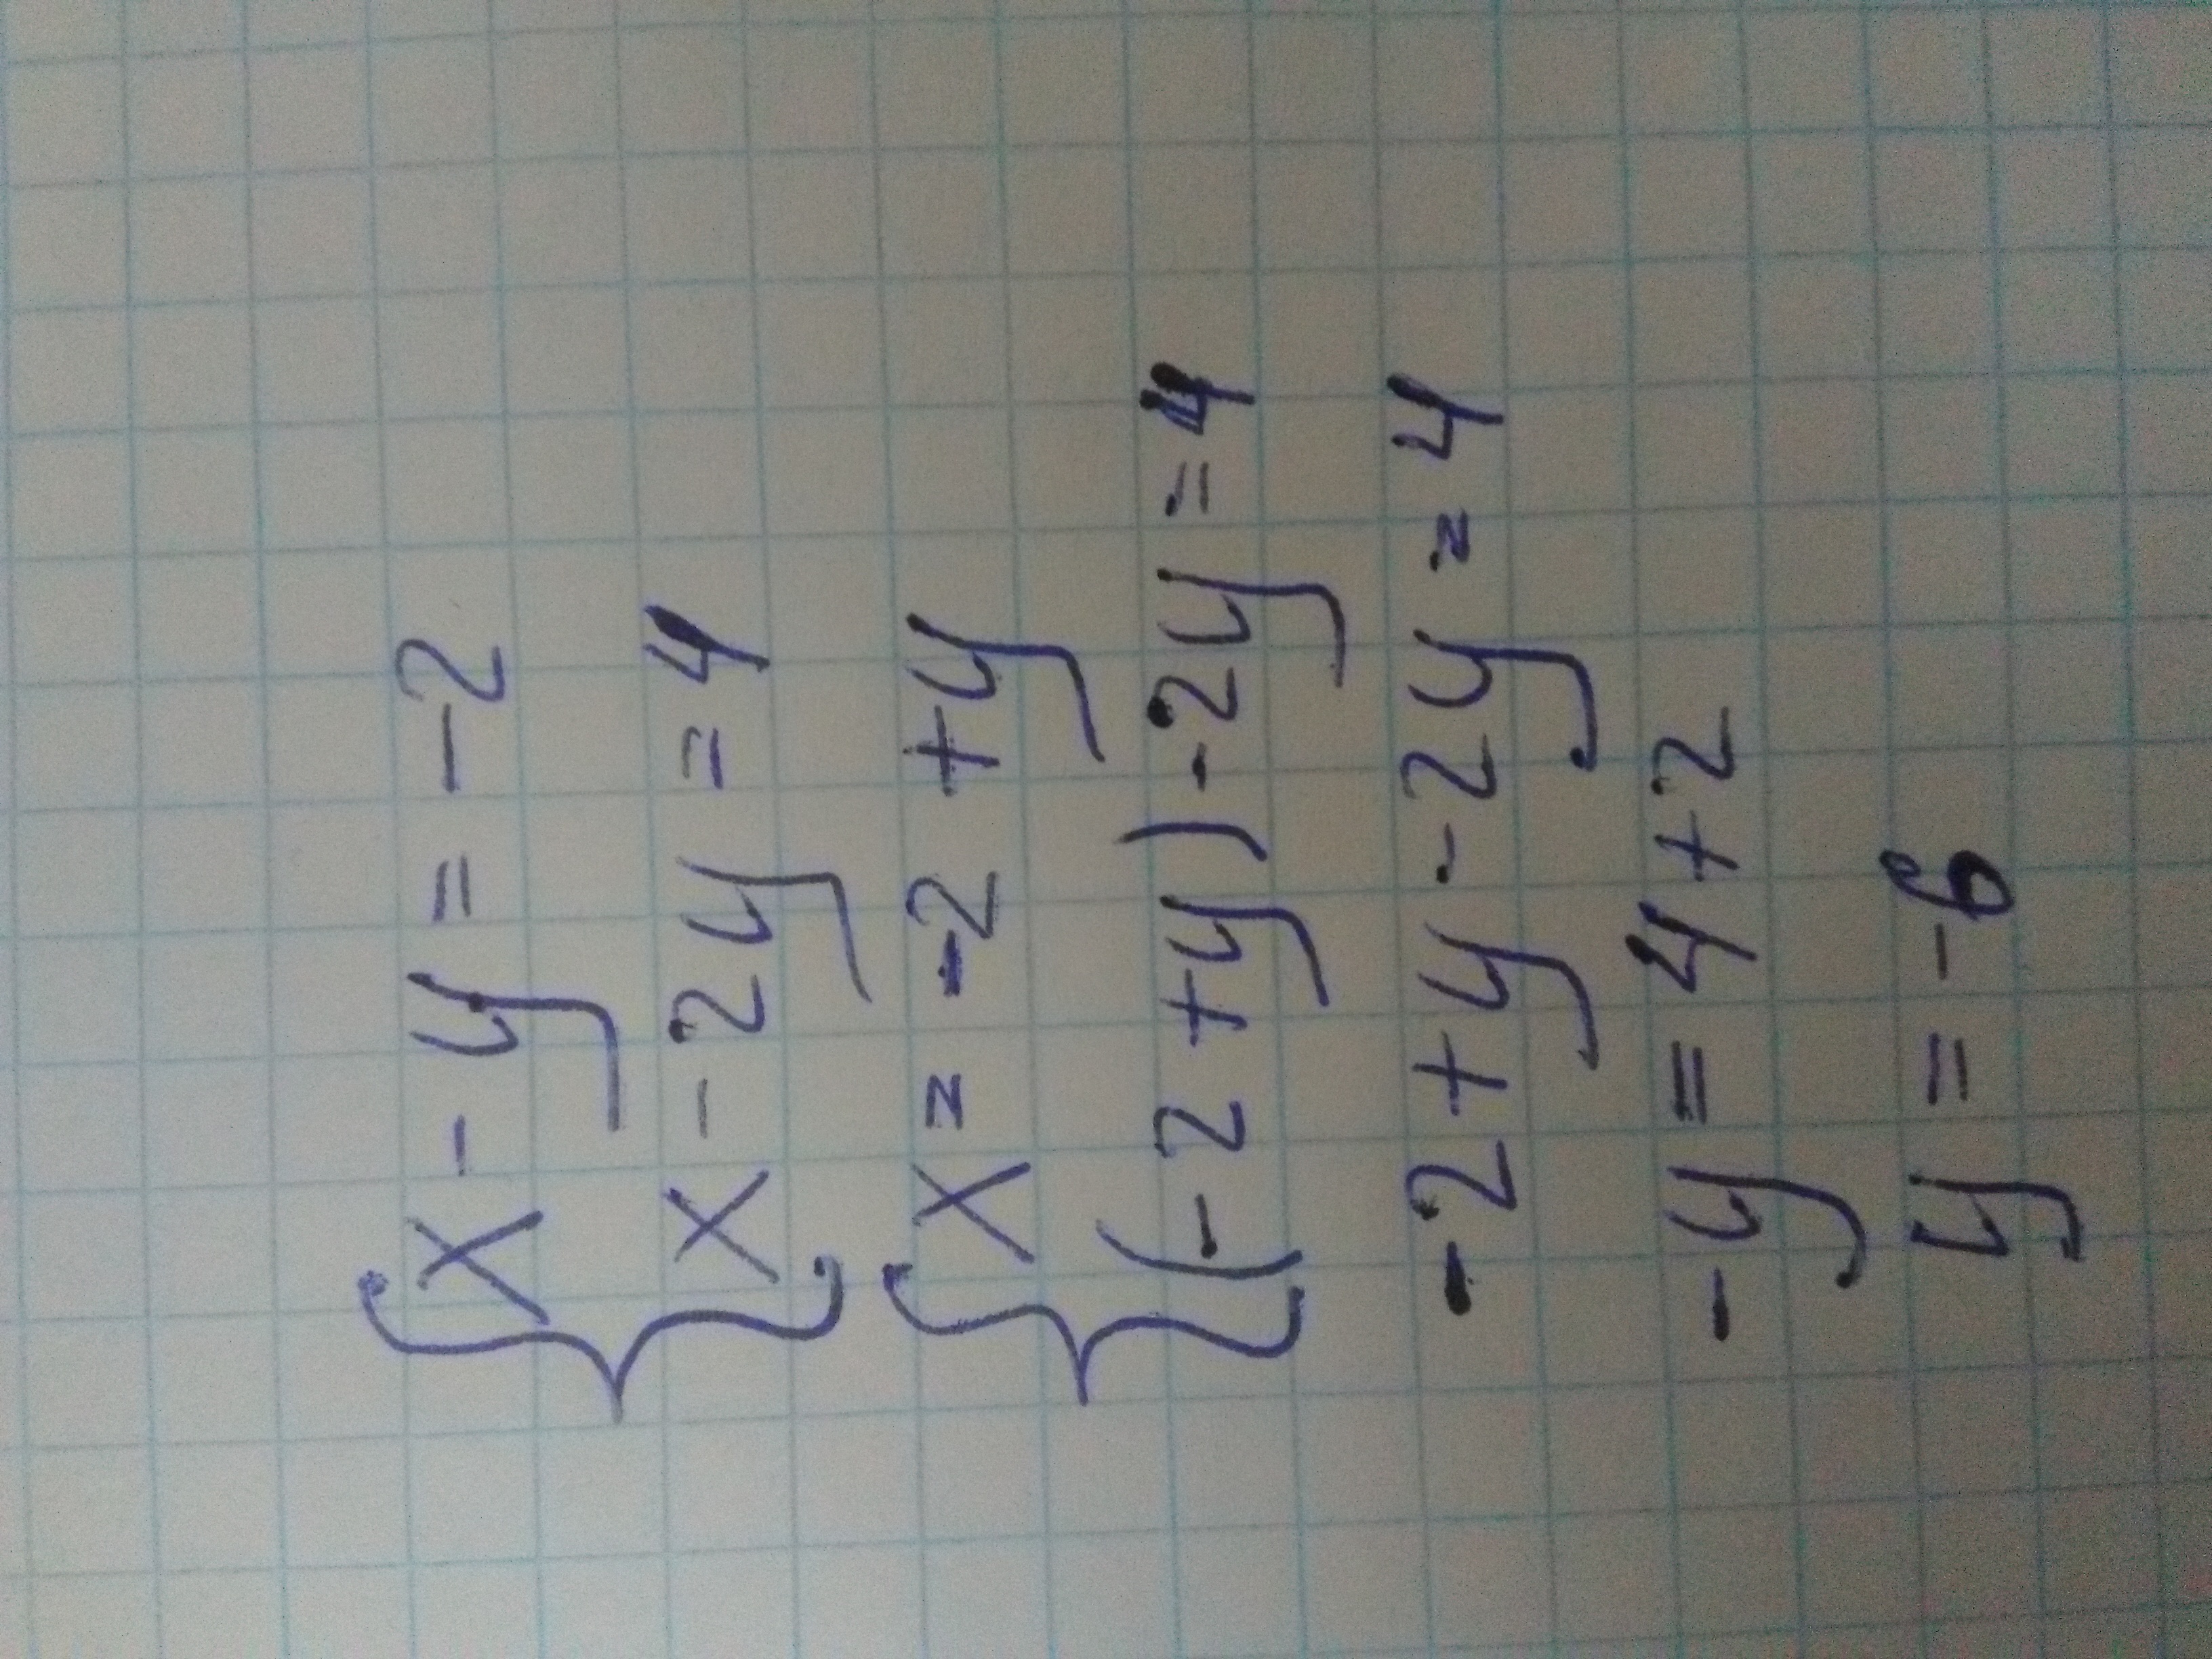 x - y = -2
x - 2y = 4
x = -2 + y
(-2 + y) - 2y = 4
-2 + y - 2y = 4
-y = 4 + 2
y = -6